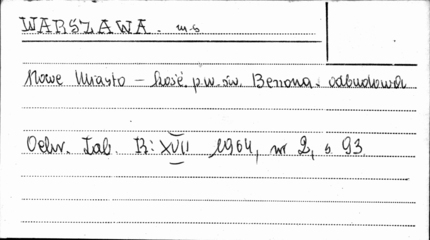 WARSZAWA. m.s
Nowe Miasto – kość. p.w. św. Benona. odbudowa
Ochr. Zab. R: XVII 1964, nr 2, s 93